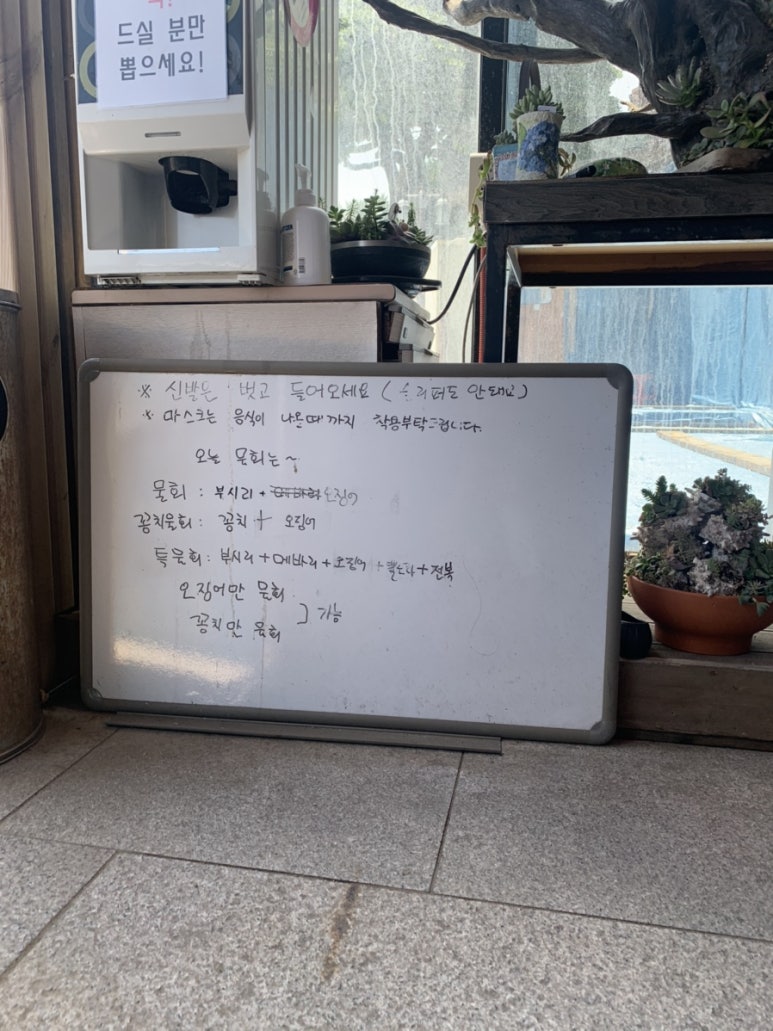 드실 분만
뽑으세요!
※ 신발은 벗고 들어오세요 (슬리퍼도 안돼요)
※ 마스크는 음식이 나올때 까지 착용부탁드립니다.
오늘 물회는~
물회 : 부시리 + 오징어
꽁치물회 : 꽁치 + 오징어
특물회 : 부시리 + 메바리 + 오징어 + + 전복
오징어만 물회
꽁치만 물회 } 가능